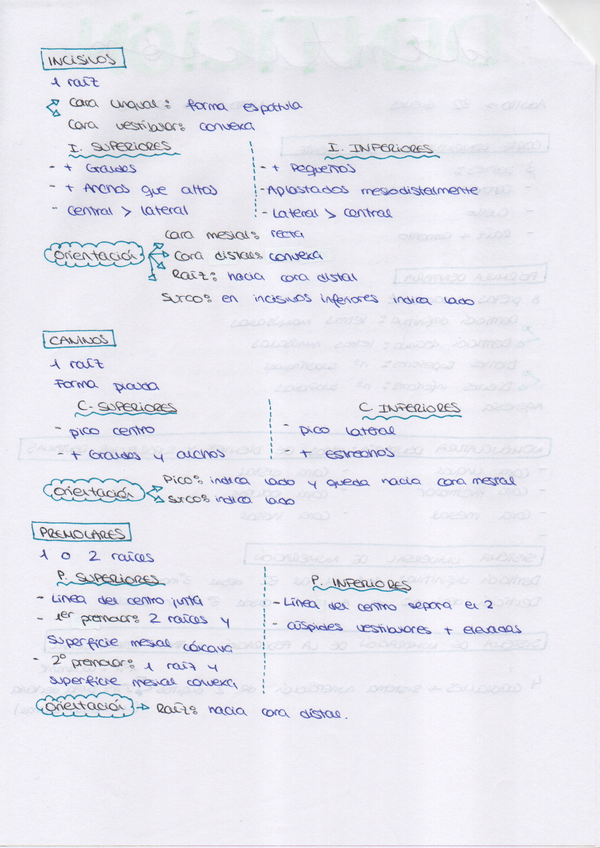 INCISIVOS
1 raíz
Cara lingual: forma espátula
Cara vestibular: convexa
I. SUPERIORES
- + Grandes
- + Anchos que altos
- Central > lateral
I. INFERIORES
- + Pequeños
- Aplastados mesiodistalmente
- Lateral > central
Orientación
Cara mesial: recta
Cara distal: convexa
Raíz: hacia cara distal
Surco: en incisivos inferiores indica lado
CANINOS
1 raíz
Forma picuda
C. SUPERIORES
- pico centro
- + Grandes y anchos
C. INFERIORES
- pico lateral
- + estrechos
Orientación
Pico: indica lado y queda hacia cara mesial
Surco: indica lado
PREMOLARES
1 o 2 raíces
P. SUPERIORES
- Línea del centro junta
- 1er premolar: 2 raíces y
superficie mesial cóncava
- 2º premolar: 1 raíz y
superficie mesial convexa
P. INFERIORES
- Línea del centro separa en 2
- cúspides vestibulares + elevadas
Orientación → Raíz: hacia cara distal.